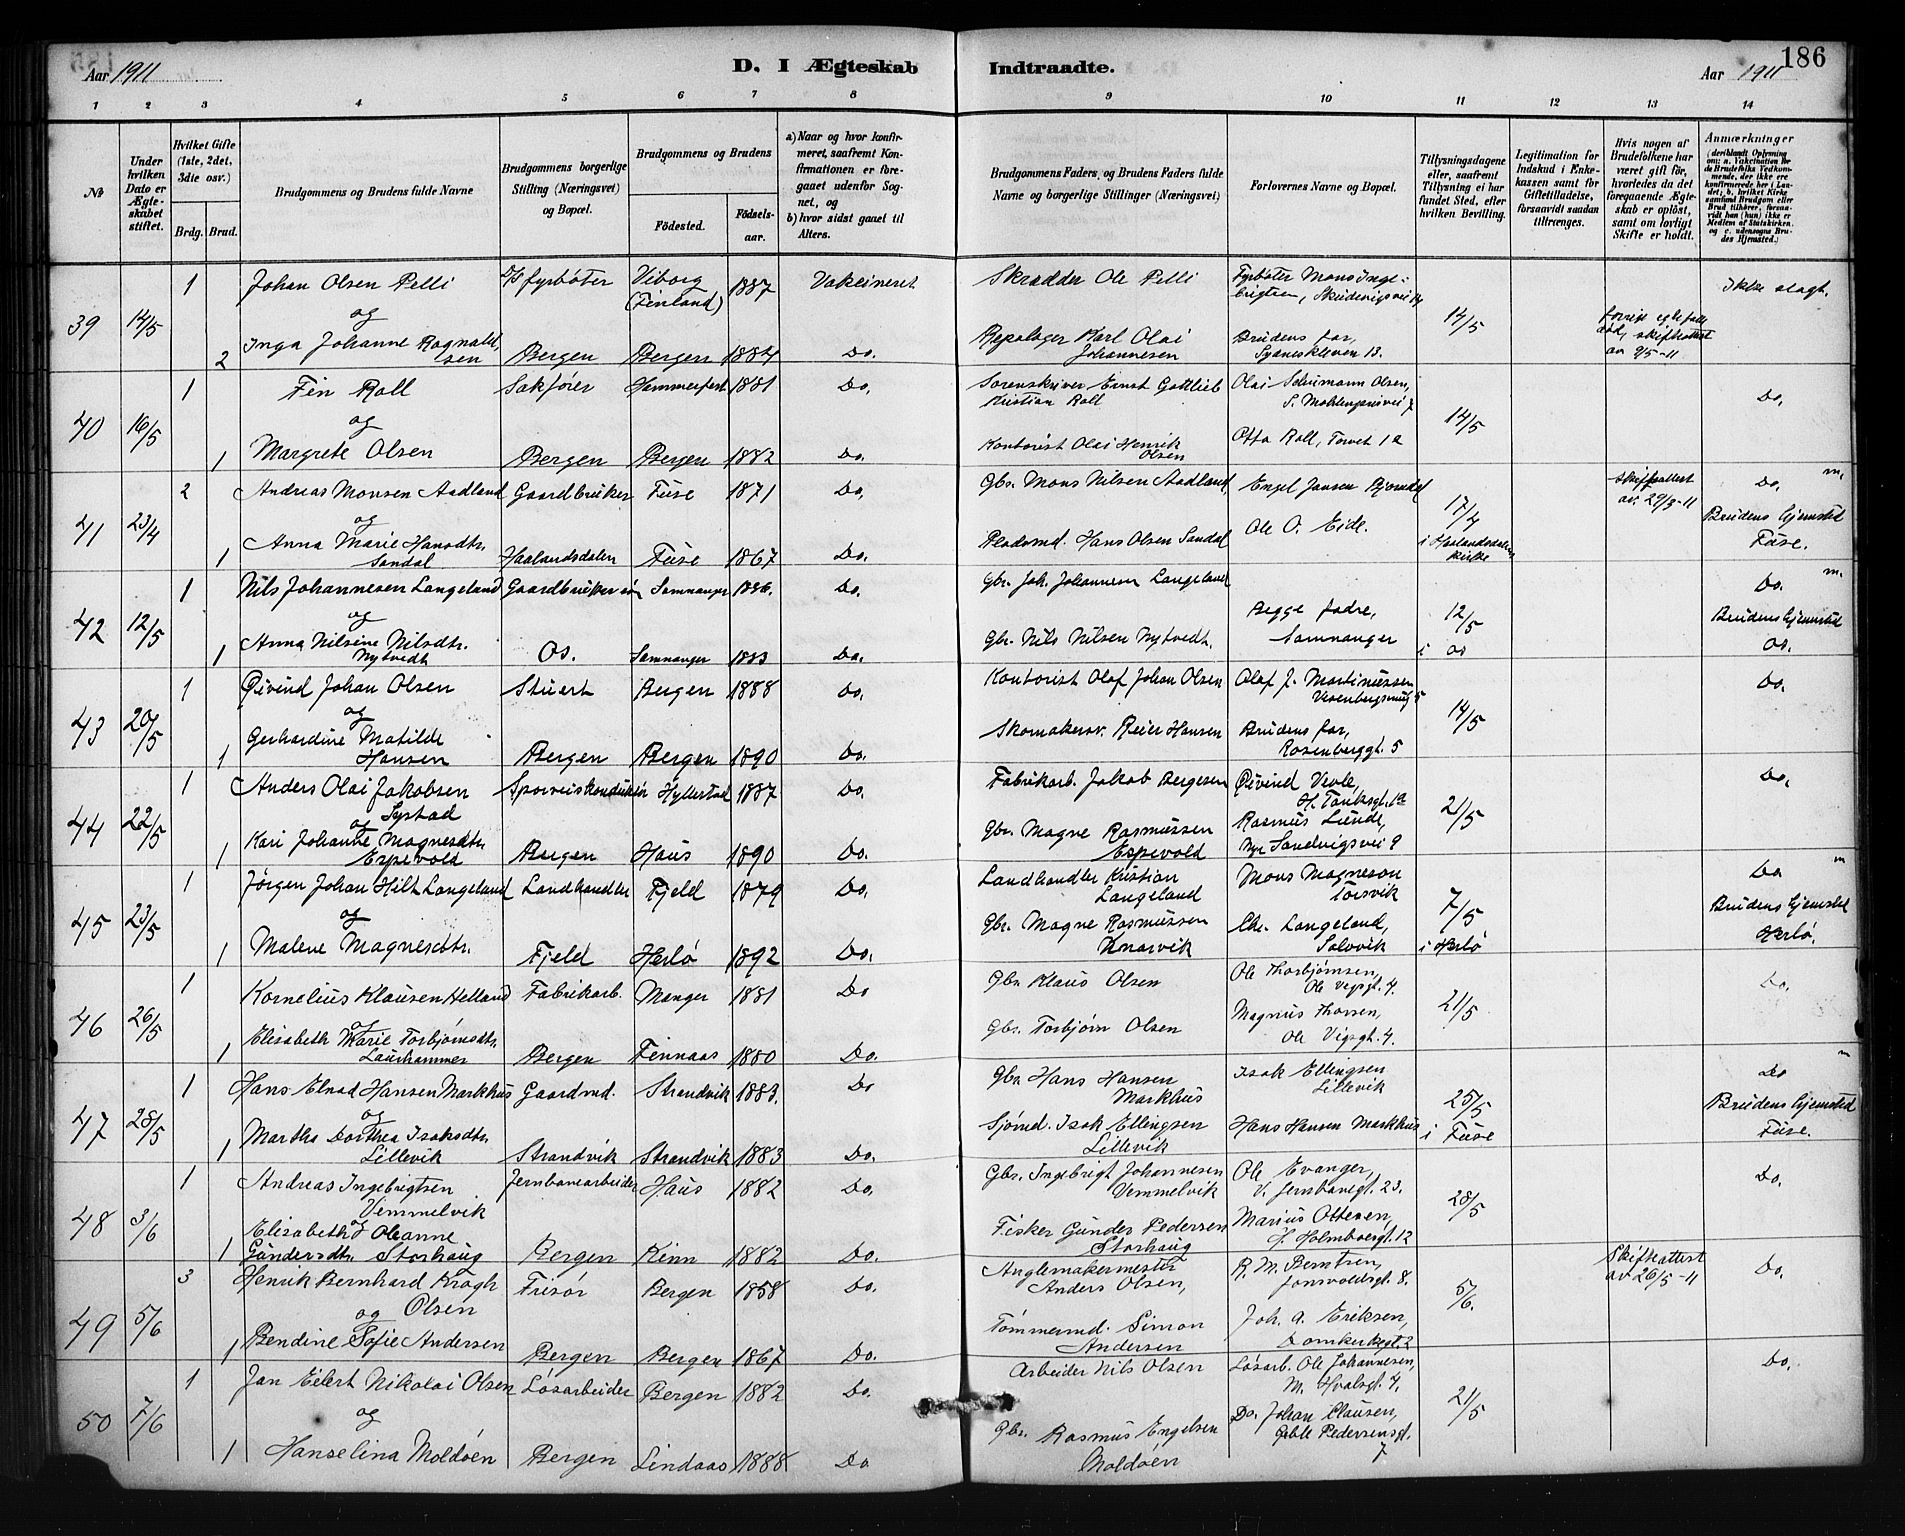 186
Aar 1911
D. I Ægteskab
Indtraadte.
Aar 1911
1 2 3 4 5 6 7 8 9 10 11 12 13 14
No
Under hvilken Dato er Ægteskabet stiftet.
Hvilket Gifte (1ste, 2det, 3die osv.)
Brdg. Brud.
Brudgommens og Brudens fulde Navne
Brudgommens borgerlige Stilling (Næringsvei) og Bopæl.
Brudgommens og Brudens
Födested.
Födselsaar.
a) Naar og hvor konfirmeret, saafremt Konfirmationen er foregaaet udenfor Sognet, og
b) hvor sidst ganet til Alters.
Brudgommens Faders, og Brudens Faders fulde Navne og borgerlige Stillinger (Næringsvei)
Forlovernes Navne og Bopæl.
Tillysningsdagene eller, saafremt Tillysning ei har fundet Sted, efter hvilken Bevilling.
Legitimation for Indskud i Enkekassen samt for Giftetilladelse, forsaavidt saadan tiltrænges.
Hvis nogen af Brudefolkene har været gift för, hvorledes da det foregaaende Ægteskab er oplöst, samt om lovligt Skifte er holdt.
Anmærkninger
39 14/5 1 Johan Olsen Pelli D/S fyrbøter Viborg (Finland) 1887 Vakcineret Skrædder Ole Pelli Fyrbøter Mons Ingebrigtsen, 14/5 Ikke slagt.
og
2 Inga Johanne Ragnaldsen Bergen Bergen 1884 Do. Repslager Karl Olai Johannesen Brudens far, 13. skifteattest av 9/5-11
40 16/5 1 Fin Roll Sakfører Hammerfest 1881 Do. Sorenskriver Ernst Gottlieb Kristian Roll Olai Schumann Olsen, S. Møhlenprisvei 7 14/5 Do.
og
1 Margrete Olsen Bergen Bergen 1882 Do. Kontorist Olai Henrik Olsen Otto Roll, Torvet 1a
41 23/4 2 Andreas Monsen Aadland Gaardbruker Fuse 1871 Do. Gbr. Mons Nilsen Aadland Engel Jansen 17/4 i Haalandsdalen kirke Skifteattest av 29/3-11 Do. m.
og
1 Anna Marie Hansdtr. Sandal Haalandsdalen Fuse 1867 Do. Hans Olsen Sandal Ole O. Eide. Brudens hjemsted Fuse.
42 12/5 1 Nils Johannesen Langeland Gaardbruker Samnanger 1886. Do. Gbr. Joh. Johannesen Langeland Begge fadre, Samnanger 12/5 i Os Do. m.
og
1 Anna Nilsine Nilsdtr. Nytvedt Os. Samnanger 1883 Do. Gbr. Nils Nilsen Nytvedt. Brudens hjemsted Os.
43 20/5 1 Øivind Johan Olsen Stuert Bergen 1888 Do. Kontorist Olaf Johan Olsen Olaf J. Martinussen 14/5 Do.
og
1 Gerhardine Matilde Hansen Bergen Bergen 1890 Do. Skomakersv. Reier Hansen Brudens far, Rosenberggt. 5
44 22/5 1 Anders Olai Jakobsen Systad Sporveiskonduktør Hyllestad 1887 Do. Fabrikarb. Jakob Bergesen Øivind Vevle, H. Tanksgt. 1a 21/5 Do.
og
1 Kari Johanne Magnesdtr. Espevold Bergen Haus 1890 Do. Gbr. Magne Rasmussen Espevold Rasmus Lunde, Nye Sandvigsvei 9
45 23/5 1 Jørgen Johan Hilt Langeland Landhandler Fjeld 1879 Do. Landhandler Kristian Langeland Mons Magneson Torsvik 7/5 i Herlø Do m
og
1 Malene Magnesdtr. Fjeld Herlø 1892 Do. Gbr. Magne Rasmussen Knarvik Chr. Langeland, Solsvik Brudens hjemsted Herlø.
46 26/5 1 Kornelius Klausen Helland Fabrikarb. Manger 1881 Do Gbr. Klaus Olsen Ole Thorbjørnsen, Ole Vigsgt. 4. 21/5 Do.
og
1 Elisabeth Marie Torbjørnsdtr. Laurhammer Bergen Finnaas 1880 Do. Gbr. Torbjørn Olsen Magnus Thorsen, Ole Vigsgt. 4.
47 28/5 1 Hans Elnod Hansen Markhus Gaardmd. Strandvik 1883. Do Gbr Hans Hansen Markhus Isak Ellingsen Lillevik 25/5 i Fuse Do m
og
1 Martha Dorthea Isaksdtr. Lillevik Strandvik Strandvik 1883 Do. Sjømd. Isak Ellingsen Lillevik Hans Hansen Markhus Brudens hjemsted Fuse.
48 3/6 1 Andreas Ingebrigtsen Vemmelvik Jernbanearbeider Haus 1882 Do. Gbr. Ingebrigt Johannesen Vemmelvik Ole Evanger, V. Jernbanegt. 23. 28/5 Do.
og
1 Elisabeth Oleanne Gundersdtr. Storhaug Bergen Kinn 1882 Do. Fisker Gunder Pedersen Storhaug Marius Ottesen, J. Holmboesgt. 12
49 5/6 3 Henrik Bernhard Krogh Olsen Frisør Bergen 1858 Do. Anglemakermester Anders Olsen, R. M. Berntsen, Jonsvoldsgt. 8. 5/6. Skifteattest av 26/5-11 Do.
og
1 Bendine Sofie Andersen Bergen Bergen 1867 Do. Tømmermd. Simon Andersen Joh. A. Eriksen, Domkirkegt. 2
50 7/6 1 Jan Eilert Nikolai Olsen Løsarbeider Bergen 1882 Do. Arbeider Nils Olsen Løsarb. Ole Johannesen, M. Hvalsgt. 4. 21/5 Do.
og
1 Hanselina Moldøen Bergen Lindaas 1888 Do Gbr. Rasmus Engelsen Moldøen Do. Johan Clausen, Gable Pedersensgt. 7